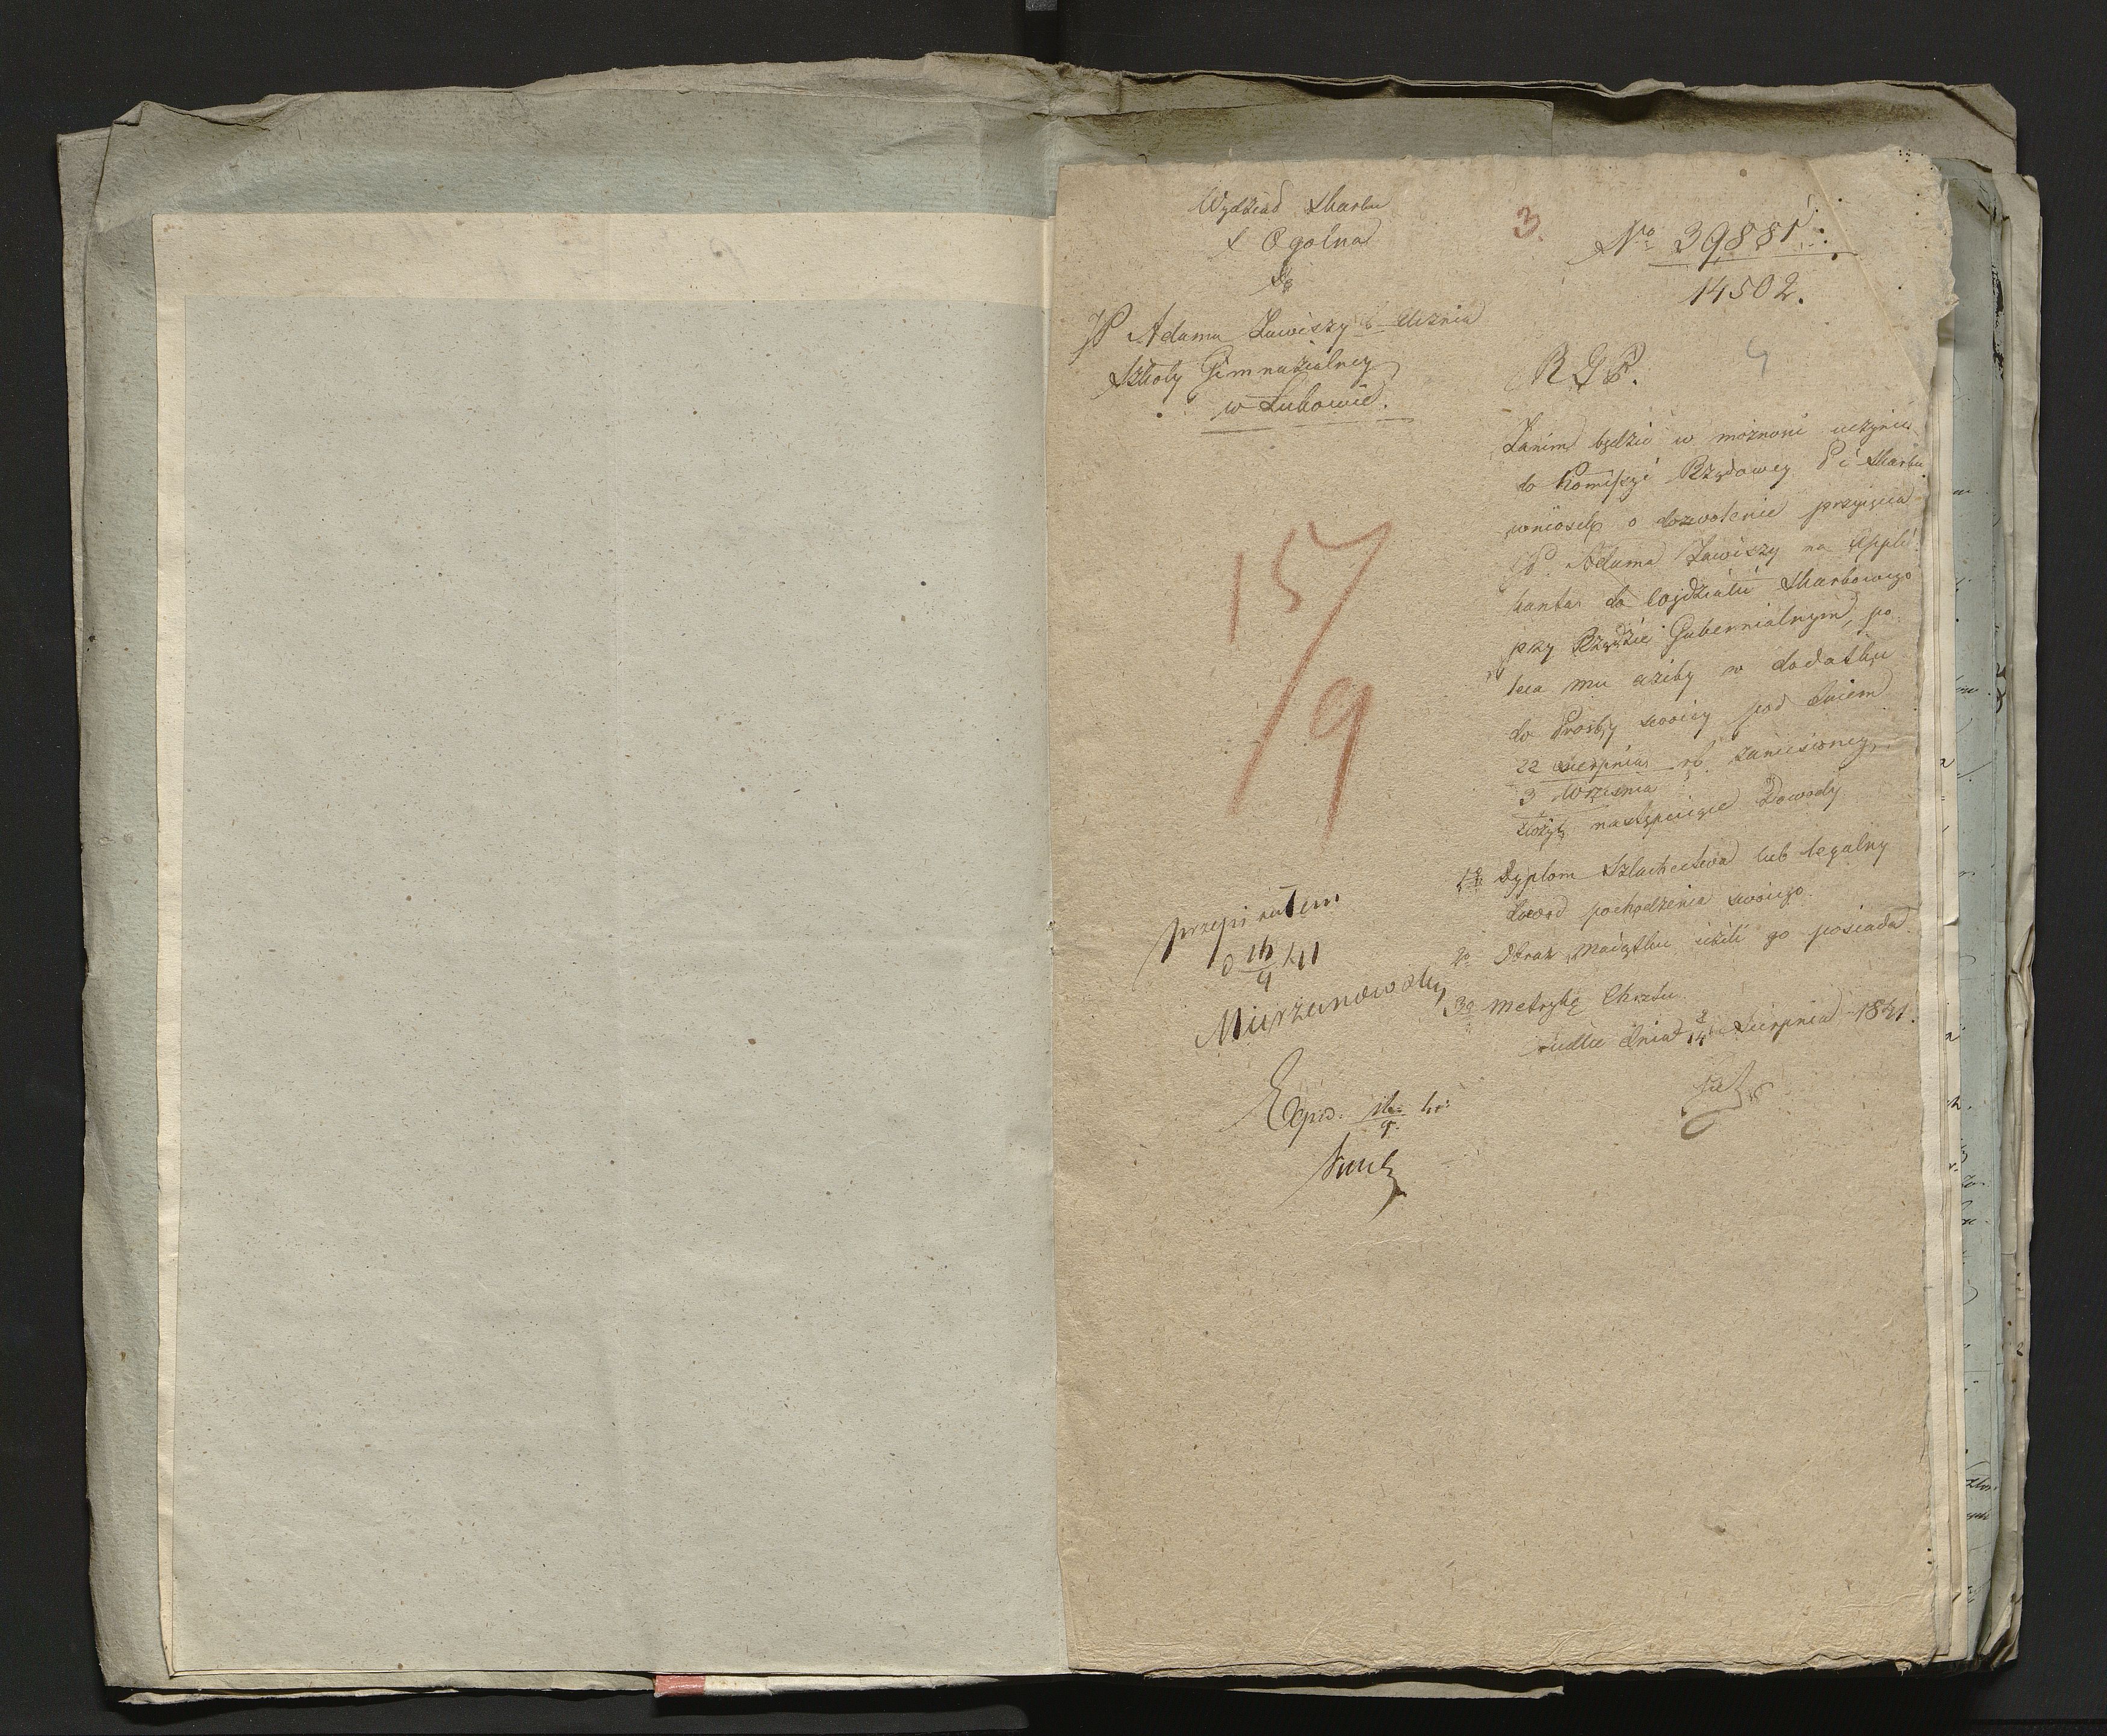 Wydział Skarbu
S Ogolna
Do
JP Adama Zawiszy b. Ucznia
Szkoły Gimnazialney
w Łukowie.
3.
No 39881.
14502.
RGP.
Zanim będzie w możnosci uczynić
do Kommissyi Rządowey P i Skarbu
wniosek o dozwolenie przyięcia
JP. Adama Zawiszy na Appli
kanta do Wydziału Skarbowego
przy Rządzie Gubernialnym, po
leca mu ażeby w dodatku
do Prośby swoiey pod dniem
22 Sierpnia rb zaniesioney,
3 Września
złożył następuiące Dowody
1o Dyplom Szlachectwa lub legalny
dowod pochodzenia swoiego.
2o Obraz Maiątku ieżeli go posiada.
3o Metrykę Chrztu.
Siedlce dnia 2/14 Sierpnia 1841.
15/9
przepisałem
d 16/9 41
Murzanowski
Exped. 16/9 41